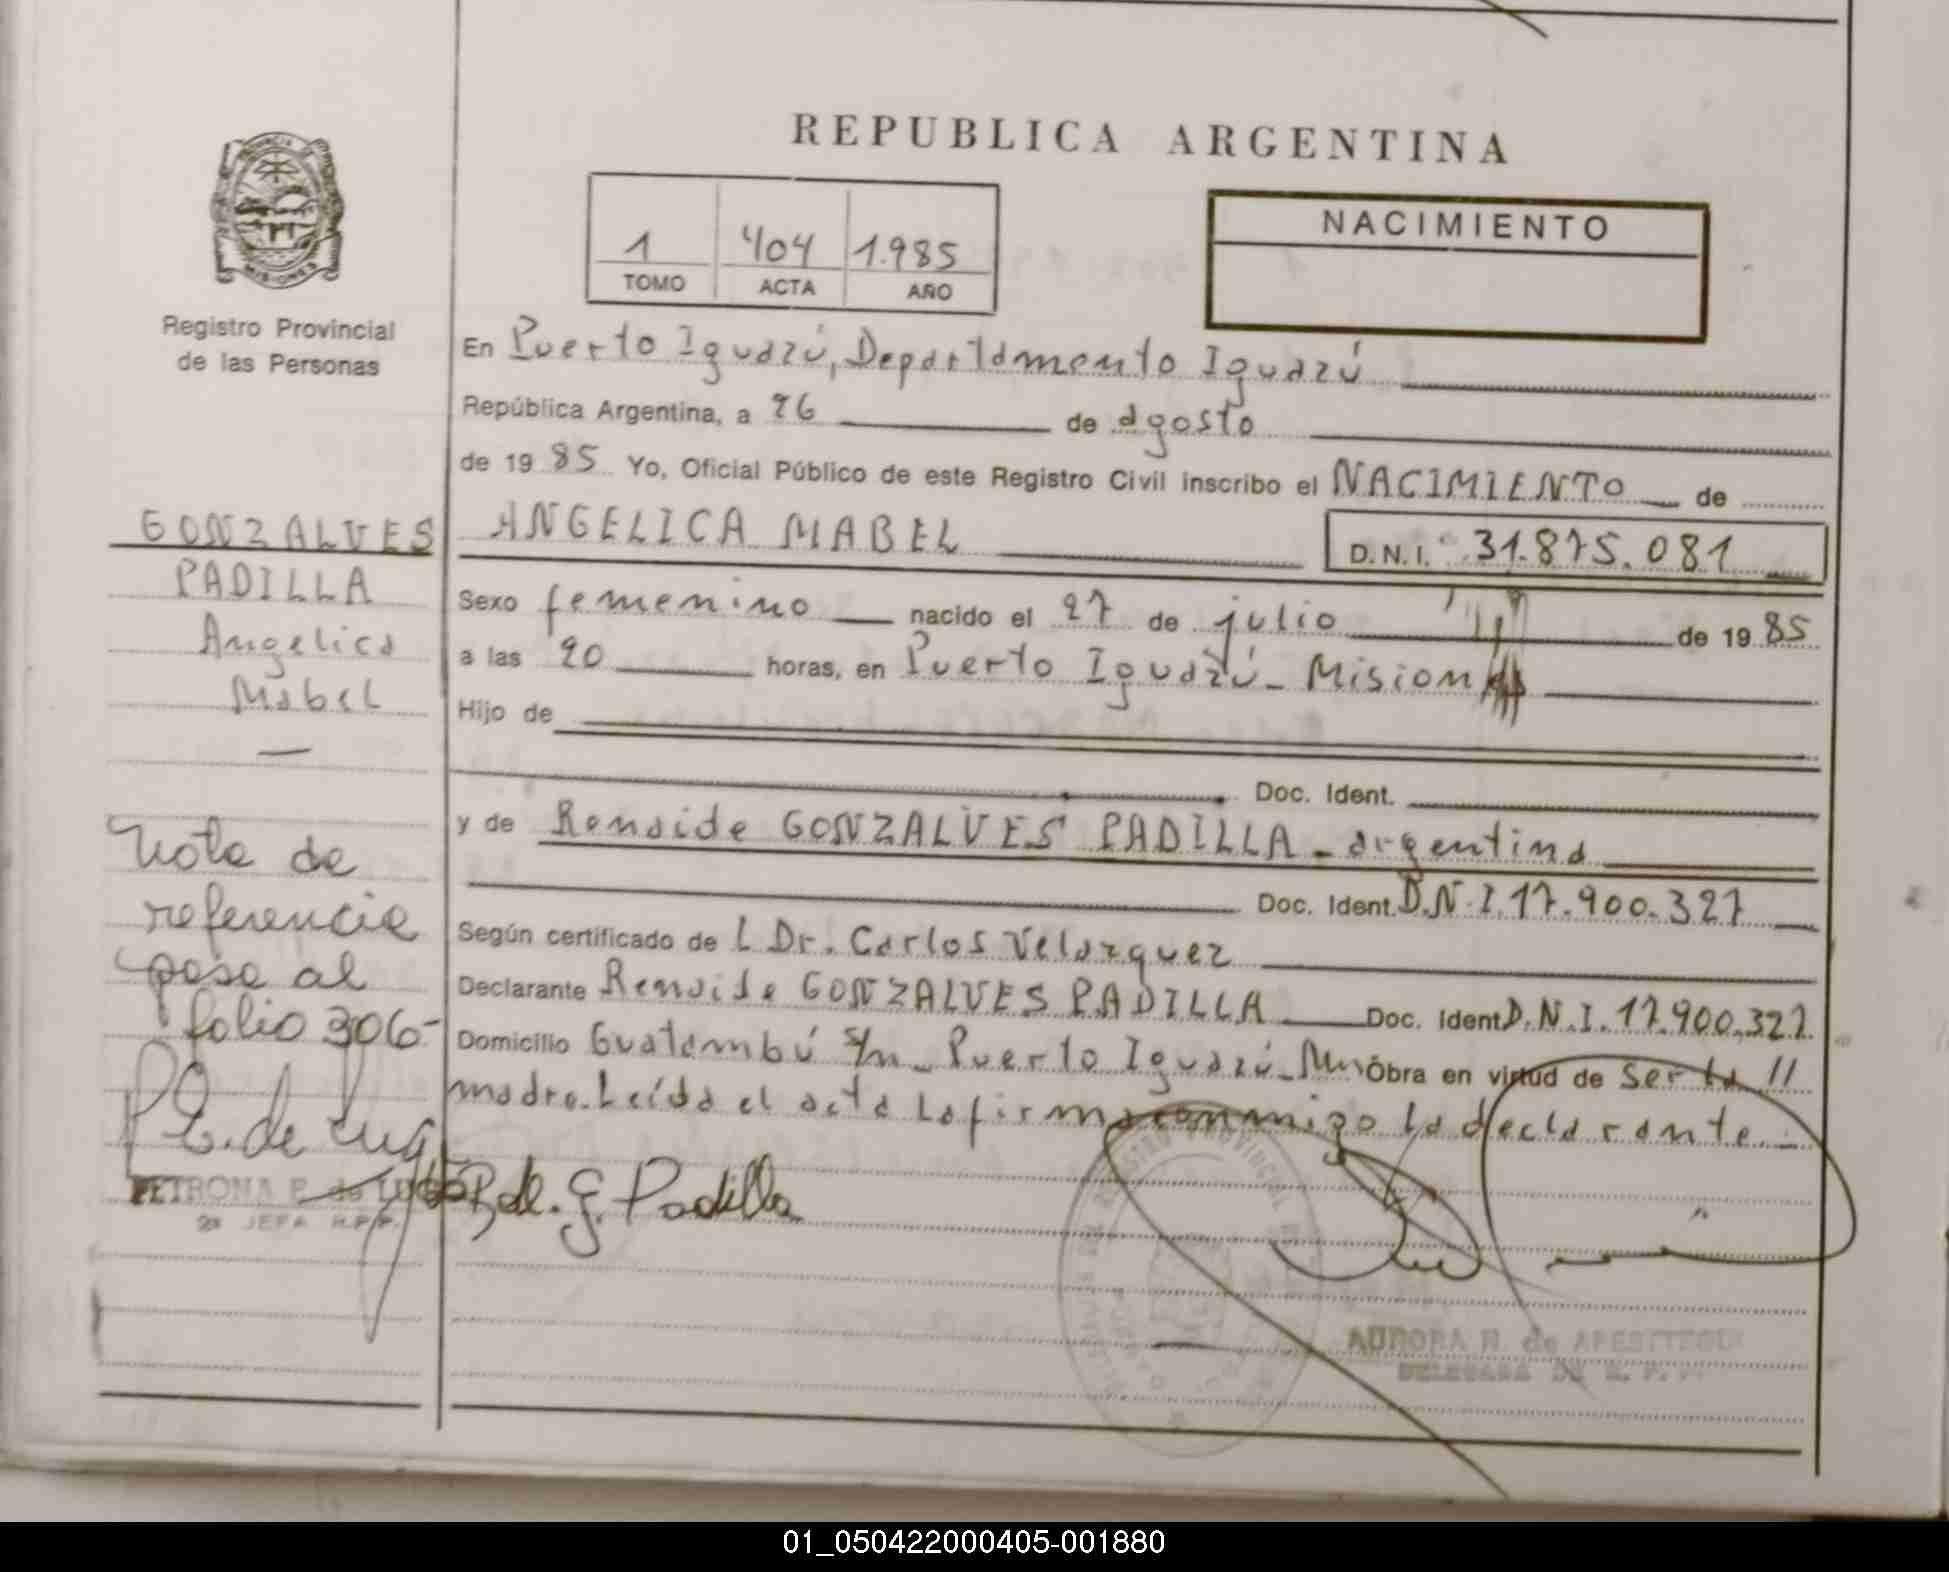 REPUBLICA ARGENTINA
MISIONES
Registro Provincial
de las Personas
1 404 1.985
TOMO ACTA AÑO
NACIMIENTO
En Puerto Iguazú, Departamento Iguazú
República Argentina, a 26 de agosto
de 19 85 Yo, Oficial Público de este Registro Civil inscribo el NACIMIENTO de
ANGELICA MABEL D.N.I. 31.875.081
Sexo femenino nacido el 27 de julio de 19 85
a las 20 horas, en Puerto Iguazú - Misiones
Hijo de
Doc. Ident.
y de Renaide GONZALVES PADILLA - argentina
Doc. Ident. D.N.I. 17.900.327
Según certificado de L Dr. Carlos Velazquez
Declarante Renaide GONZALVES PADILLA Doc. Ident D.N.I. 17.900.327
Domicilio Guatambú s/n - Puerto Iguazú - Mnes Obra en virtud de ser la //
madre. Leída el acta la firma conmigo la declarante. -
R de. G. Padilla
AURORA H. de ARESTTEGUI
DELEGADA DE R. P. P.
GONZALVES
PADILLA
Angelica
Mabel
—
Nota de
referencia
pasa al
folio 306-
P E. de Lugo
PETRONA E. de LUGO
2a JEFA R.P.P.
01_050422000405-001880